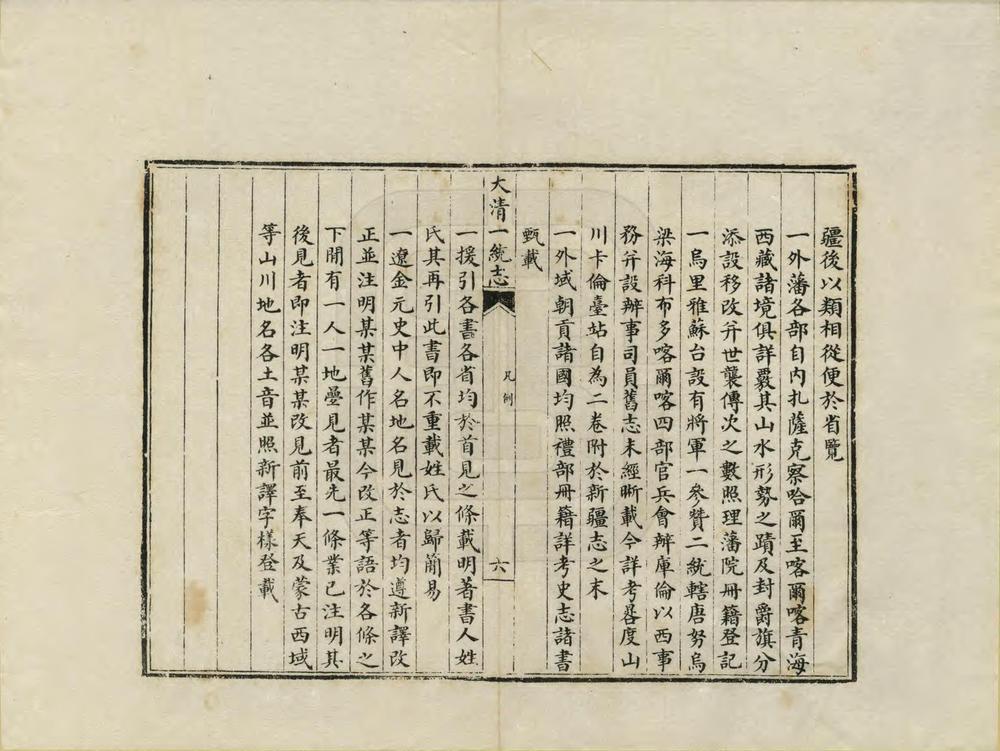 疆後以類相從便於省覽
一外藩各部自內扎薩克察哈爾至喀爾喀青海
西藏諸境俱詳覈其山水形勢之蹟及封爵旗分
添設移改并世襲傳次之數照理藩院冊籍登記
一烏里雅蘇台設有將軍一參贊二統轄唐努烏
梁海科布多喀爾喀四部官兵會辦庫倫以西事
務并設辦事司員舊志未經晰載今詳考晷度山
川卡倫臺站自為二卷附於新疆志之末
一外域朝貢諸國均照禮部冊籍詳考史志諸書
甄載
大清一統志
凡例
六
一援引各書各省均於首見之條載明著書人姓
氏其再引此書即不重載姓氏以歸簡易
一遼金元史中人名地名見於志者均遵新譯改
正並注明某某舊作某某今改正等語於各條之
下閒有一人一地疊見者最先一條業已注明其
後見者即注明某某改見前至奉天及蒙古西域
等山川地名各土音並照新譯字樣登載